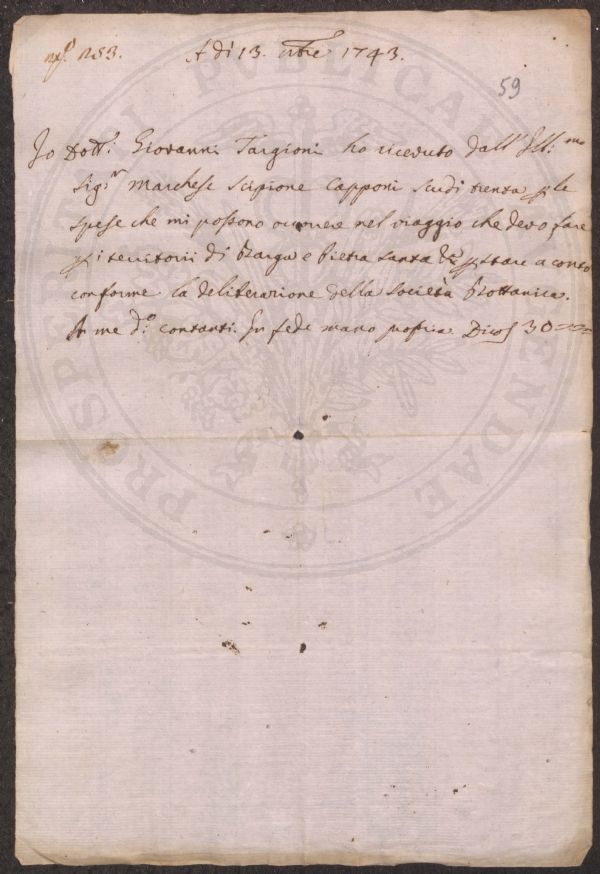 A dì 13. 1743.
59
Io Dott.r Giovanni Targioni ho riceduto dall' Ill.mo
Sig.r Marchese Scipione Capponi scudi trenta p le
spese che mi possono occorrere nel viaggio che devo fare
p i territorii di Barga e Pietra Santa p stare a conto
conforme la deliberazione della Società Bottanica.
A me d.o contanti. In fede mano propria 30
PROSPERITATI PVBLICAE AVGENDAE